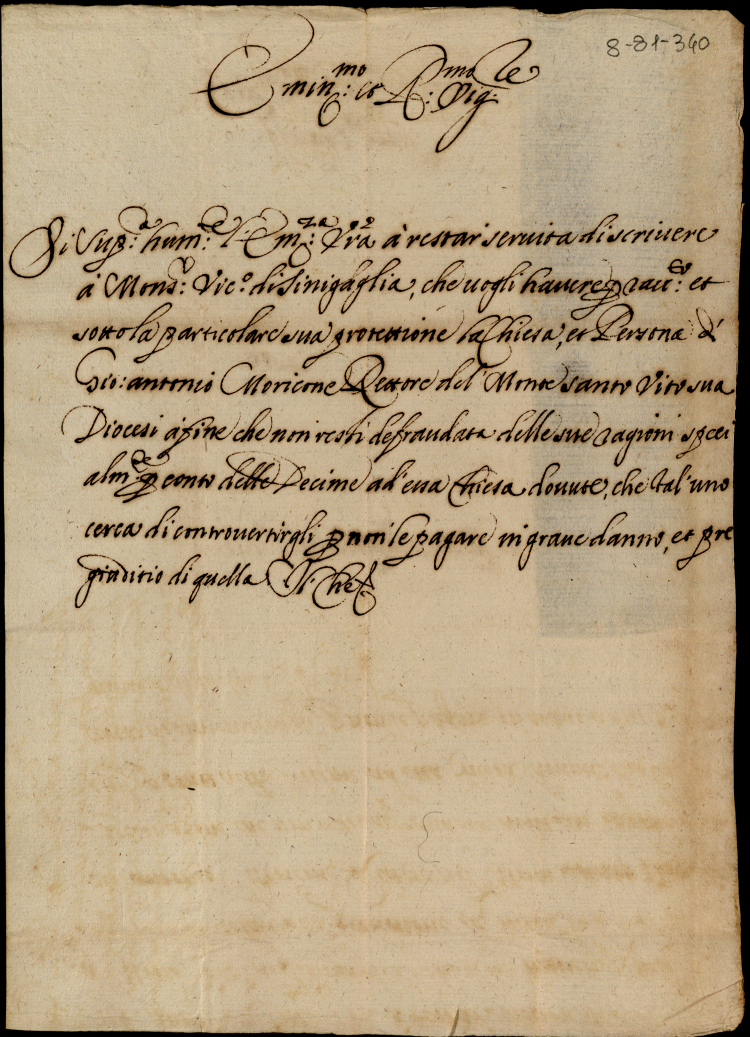 8-81-340
Emin:mo et R:mo Sig:re
Si Sup:a hum:e l'Em:za Vra à restar seruita di scriuere
à Mons:r Vic:o di Sinigaglia, che uogli hauere p racc: et
sotto la particolare sua protettione la Chiesa, et Persona di
Gio: antonio Moricone Rettore del Monte santo Vito sua
Diocesi à fine che non resti defraudata delle sue ragioni speci
alm:te p conto delle Decime ad'essa Chiesa douute, che tal'uno
cerca di controuertirgli p non le pagare in graue danno, et pre
giuditio di quella Il che